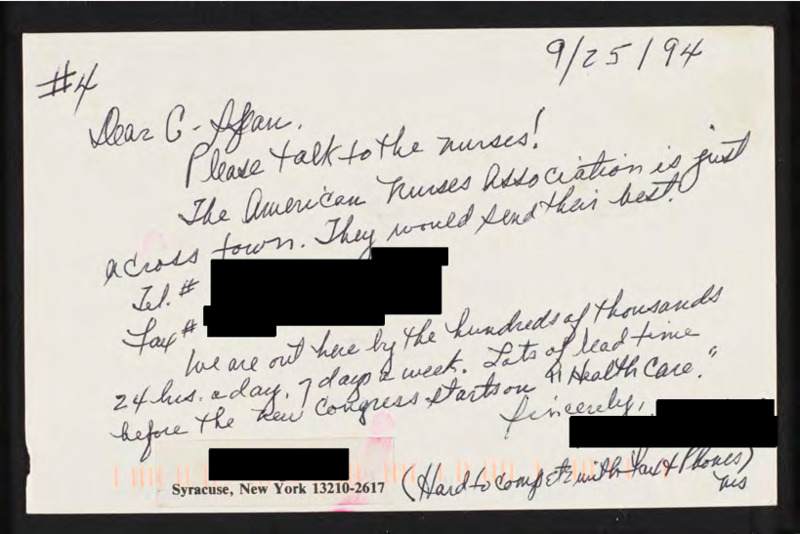 9/25/94
#4
Dear C-Span.
Please talk to the nurses!
The American Nurses Association is just
across town. They would send their best.
Tel. #
Fax #
We are out here by the hundreds of thousands
24 hrs. a day, 7 days a week. Lots of lead time
before the new Congress starts on "Health Care."
Sincerely,
Syracuse, New York 13210-2617
(Hard to compete with Fax & Phones)